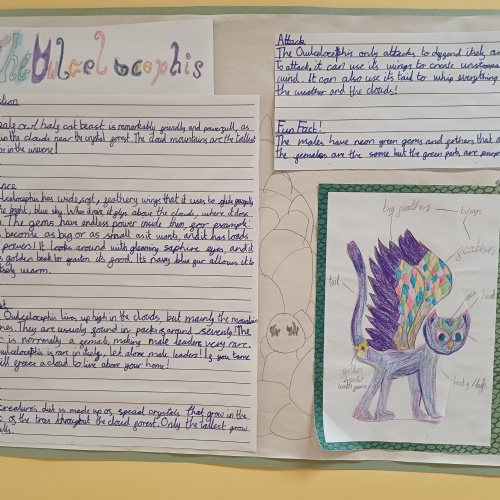 The Owlcelocephis
Attack
The Owlcelocephis only attacks to defend itself, and
to attack, it can use its wings to create unstoppa
wind. It can also use its tail to whip everything
the weather and the clouds!
Fun Fact!
The males have neon green gems and feathers that a
the females are the same but the green parts are purp
tion
owl half cat beast is remarkably friendly and powerfull, as
in the clouds near the crystal forest. The cloud mountains are the tallest
in the universe!
nce
lcelocephis has wide, soft, feathery wings that it uses to glide gracefully
the light, blue sky. When it rains, it flys above the clouds, where it does
The gems have endless power inside them for example:
become as big or as small as it wants, and it has loads
powers! It looks around with gleaming saphire eyes, and it
golden beak to perform its good. Its navy blue fur allows it to
warm.
at
Owlcelocephis lives up high in the clouds, but mainly the mountain
nes. They are usually found in packs of around seventy! The
is normally a female, making male leaders very rare.
wlcelocephis is rare in itself, let alone male leaders! If you tame
will freeze a cloud to live above your home!
creature's diet is made up of special crystals that grow in the
of the trees throughout the cloud forest. Only the tallest grow
big feathers
wings
tail
head
body/legs
golden
with gems